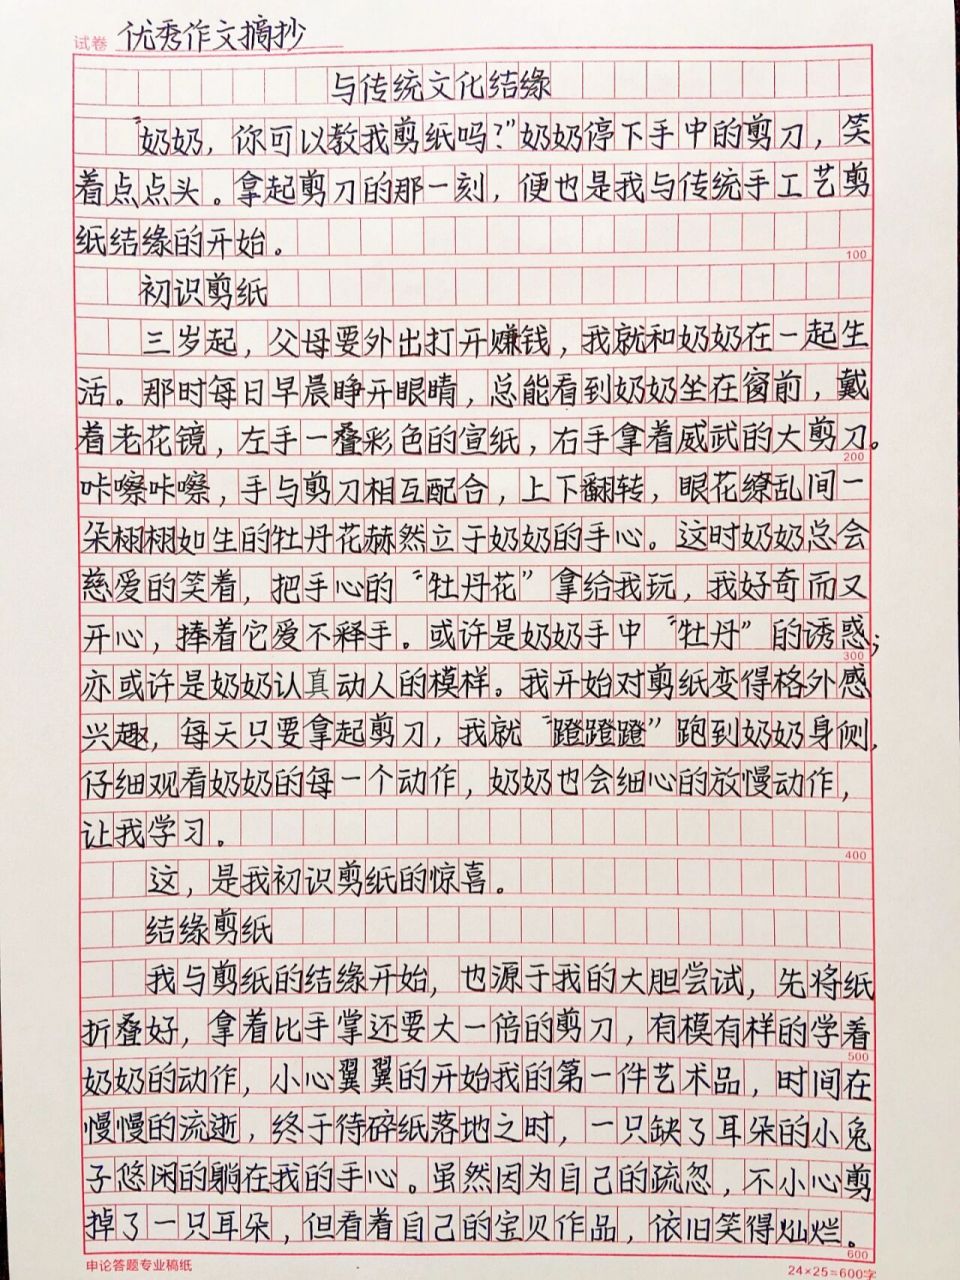 试卷 优秀作文摘抄
与传统文化结缘
“奶奶，你可以教我剪纸吗?”奶奶停下手中的剪刀，笑
着点点头。拿起剪刀的那一刻，便也是我与传统手工艺剪
纸结缘的开始。
100
初识剪纸
三岁起，父母要外出打开赚钱，我就和奶奶在一起生
活。那时每日早晨睁开眼睛，总能看到奶奶坐在窗前，戴
着老花镜，左手一叠彩色的宣纸，右手拿着威武的大剪刀。
200
咔嚓咔嚓，手与剪刀相互配合，上下翻转，眼花缭乱间一
朵栩栩如生的牡丹花赫然立于奶奶的手心。这时奶奶总会
慈爱的笑着，把手心的“牡丹花”拿给我玩，我好奇而又
开心，捧着它爱不释手。或许是奶奶手中“牡丹”的诱惑；
300
亦或许是奶奶认真动人的模样。我开始对剪纸变得格外感
兴趣，每天只要拿起剪刀，我就“蹬蹬蹬”跑到奶奶身侧，
仔细观看奶奶的每一个动作，奶奶也会细心的放慢动作，
让我学习。
400
这，是我初识剪纸的惊喜。
结缘剪纸
我与剪纸的结缘开始，也源于我的大胆尝试，先将纸
折叠好，拿着比手掌还要大一倍的剪刀，有模有样的学着
500
奶奶的动作，小心翼翼的开始我的第一件艺术品，时间在
慢慢的流逝，终于待碎纸落地之时，一只缺了耳朵的小兔
子悠闲的躺在我的手心。虽然因为自己的疏忽，不小心剪
掉了一只耳朵，但看着自己的宝贝作品，依旧笑得灿烂。
600
申论答题专业稿纸
24×25=600字